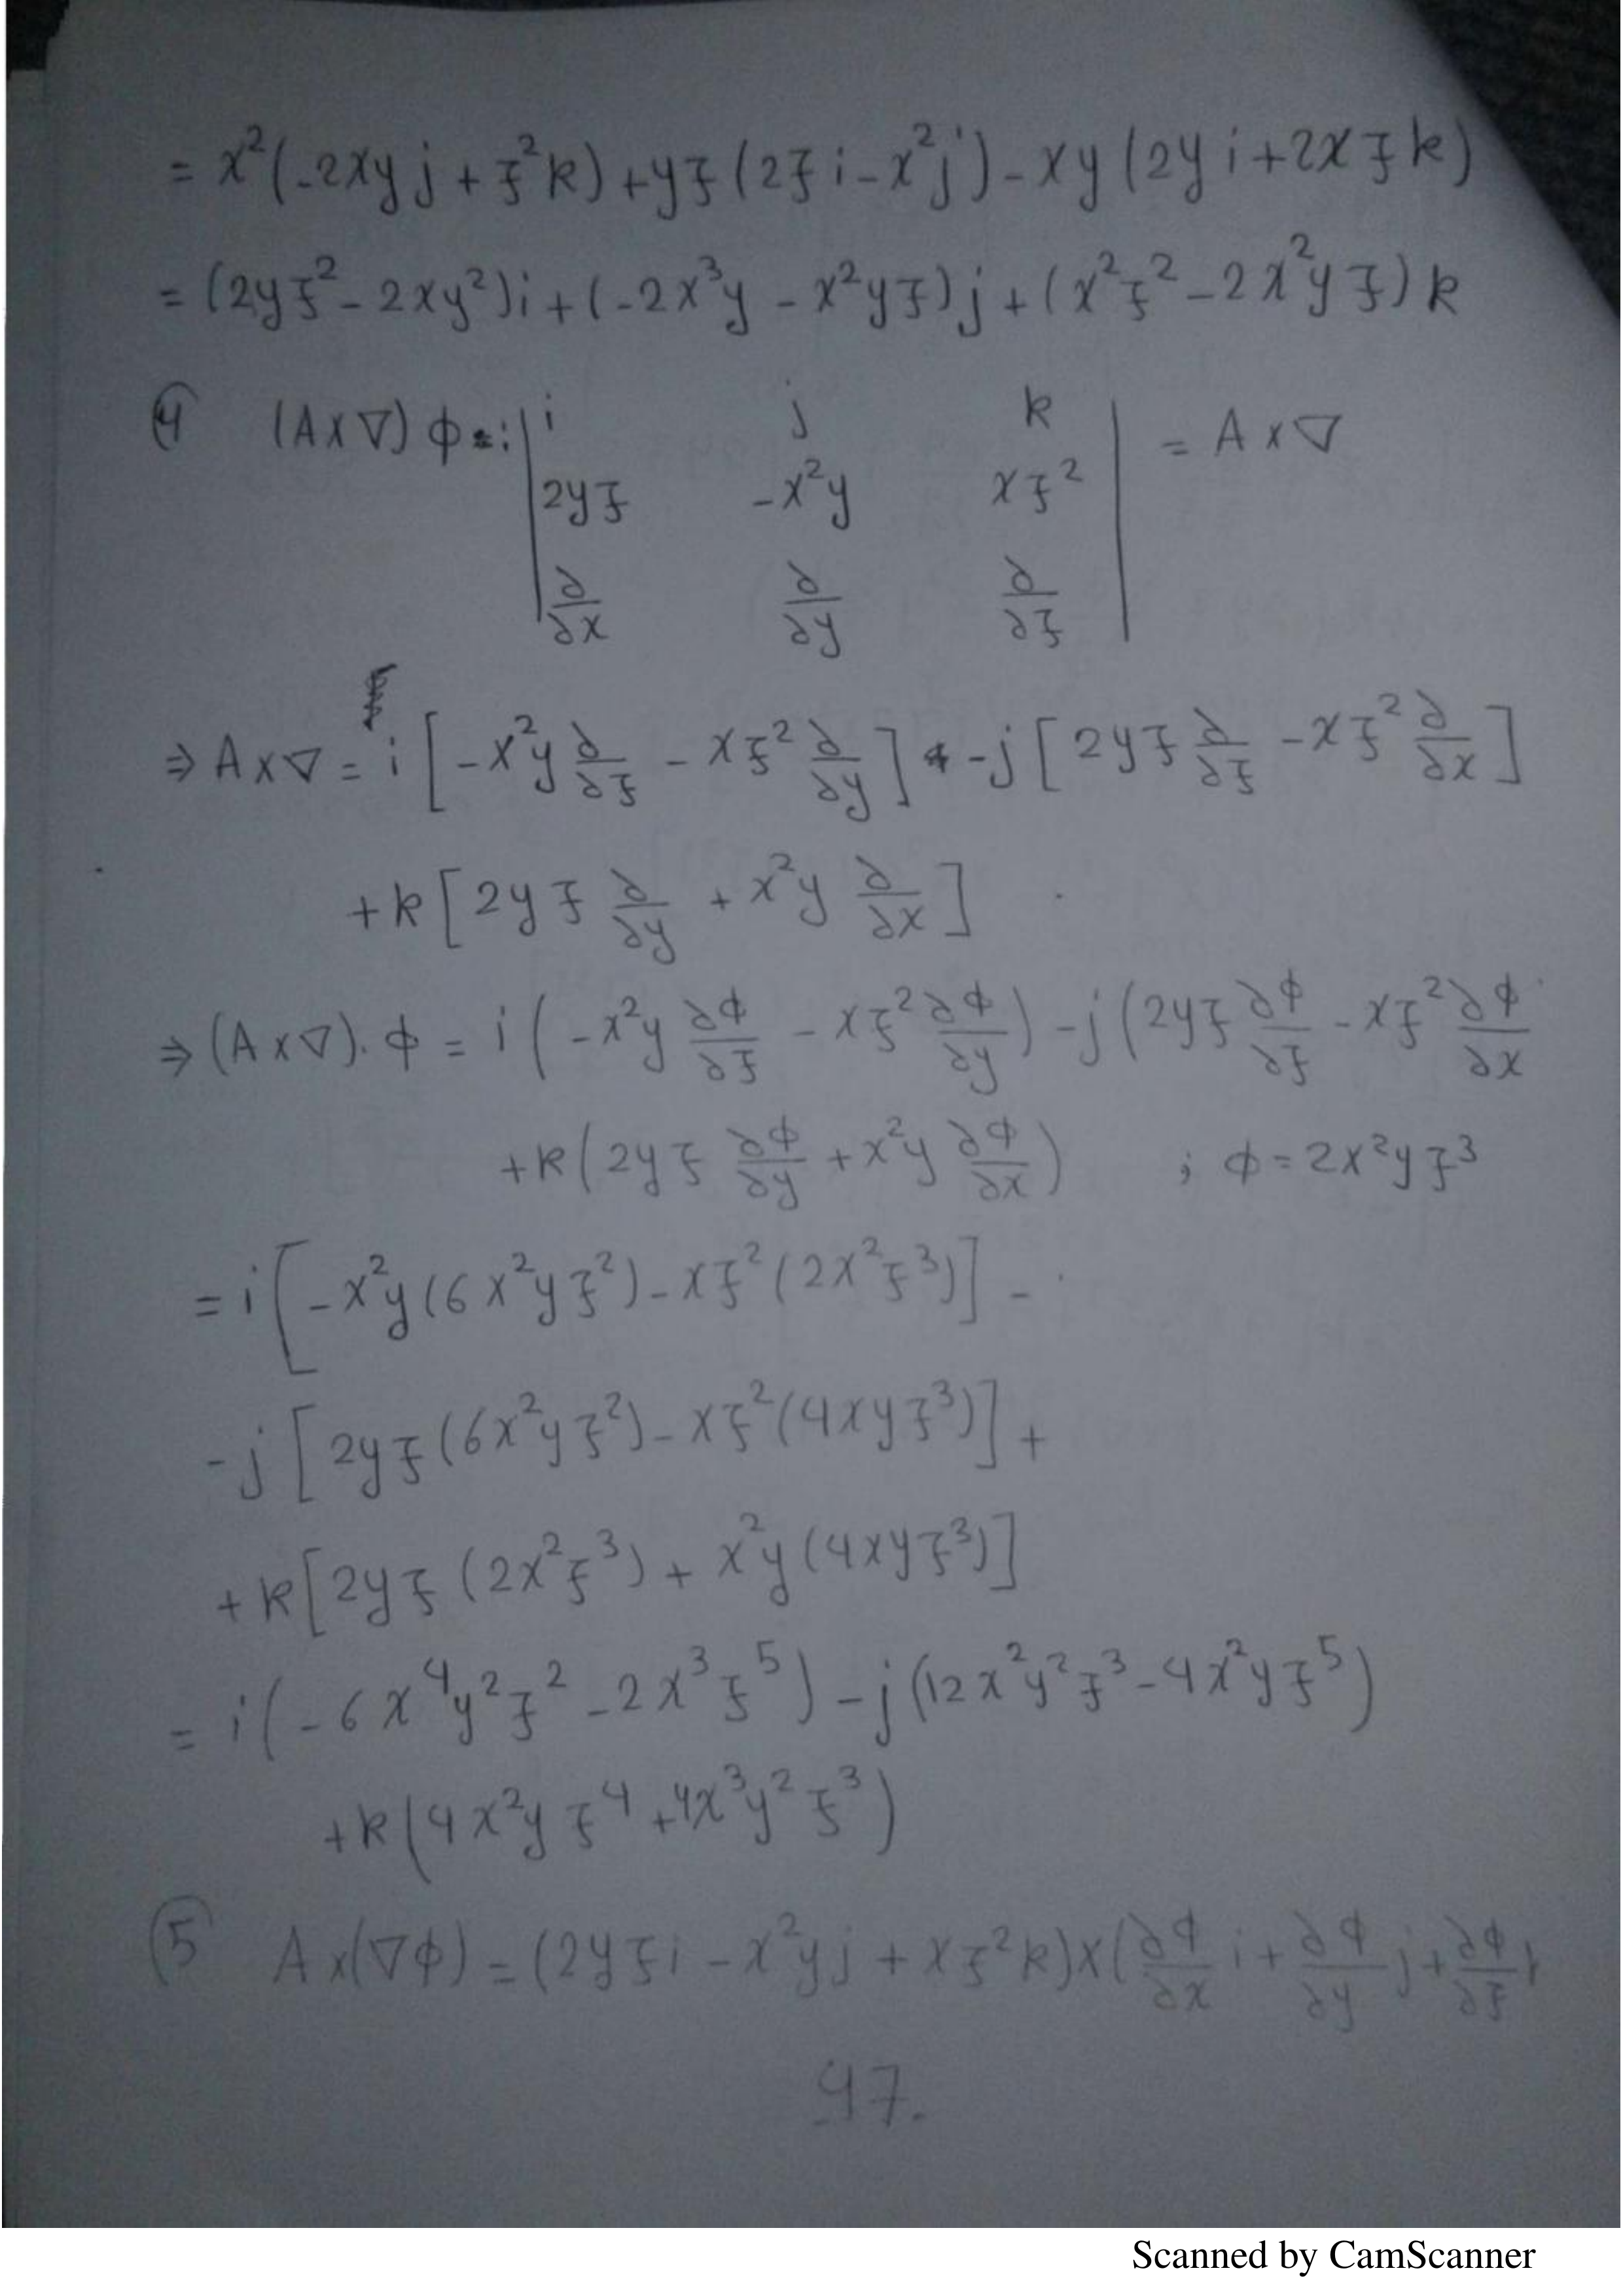 = x²(-2xyj + z²k) + yz(2zi - x²j) - xy(2yi + 2xzk)
= (2yz² - 2xy²)i + (-2x³y - x²yz)j + (x²z² - 2x²yz)k
④ (A×∇)ϕ = | i j k | = A×∇
2yz -x²y xz²
∂/∂x ∂/∂y ∂/∂z
⇒ A×∇ = i[-x²y ∂/∂z - xz² ∂/∂y] -j[2yz ∂/∂z - xz² ∂/∂x]
+k[2yz ∂/∂y + x²y ∂/∂x]
⇒ (A×∇).ϕ = i(-x²y ∂ϕ/∂z - xz² ∂ϕ/∂y) -j(2yz ∂ϕ/∂z - xz² ∂ϕ/∂x
+k(2yz ∂ϕ/∂y + x²y ∂ϕ/∂x) ; ϕ = 2x²yz³
= i[-x²y(6x²yz²) - xz²(2x²z³)] -
-j[2yz(6x²yz²) - xz²(4xyz³)] +
+k[2yz(2x²z³) + x²y(4xyz³)]
= i(-6x⁴y²z² - 2x³z⁵) - j(12x²y²z³ - 4x²yz⁵)
+k(4x²yz⁴ + 4x³y²z³)
⑤ A×(∇ϕ) = (2yzi - x²yj + xz²k)×(∂ϕ/∂x i + ∂ϕ/∂y j + ∂ϕ/∂z
47.
Scanned by CamScanner